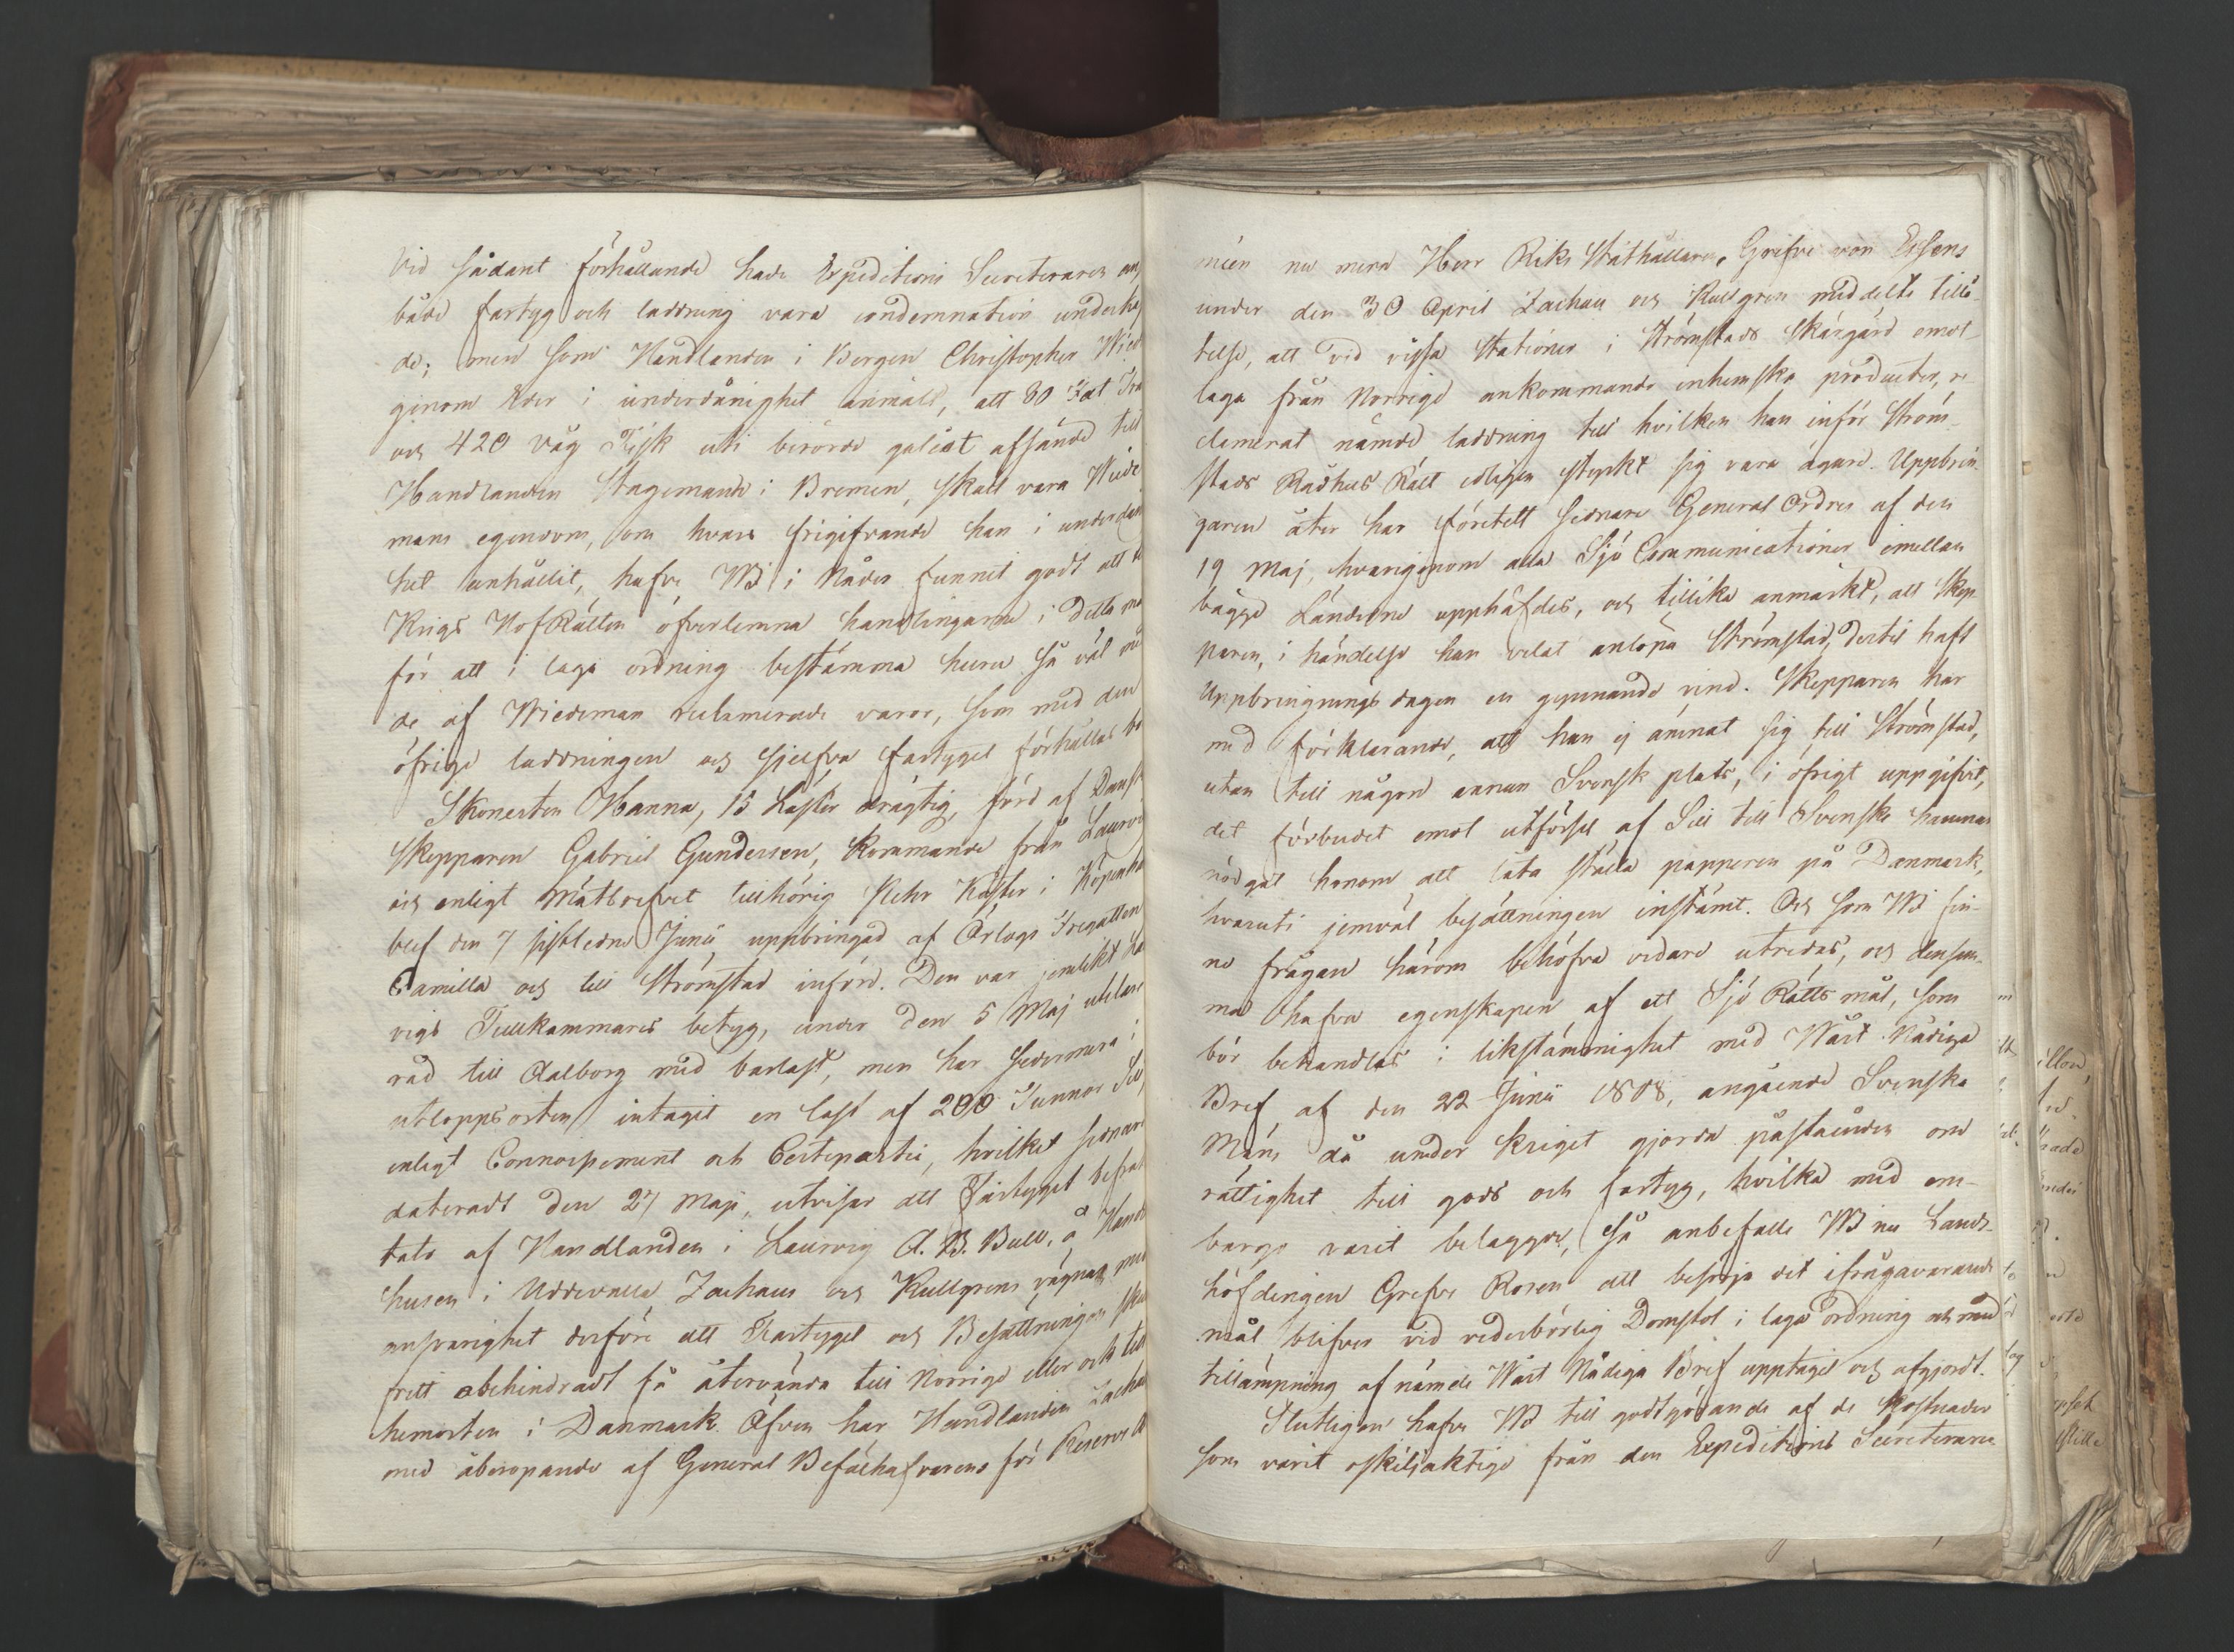 Vid sådant förhållande hade Expeditions Secreteraren an
både fartyg och laddning vara condemnation underka
de; men som Handlanden i Bergen Christopher Wied
genom Eder i underdånighet anmält, att 80 Fat Tra
och 420 våg Fisk uti berörde galéat afsände till
Handlanden Stagemann i Bremen, skall vara Wiede
mans egendom, om hvars frigifvande han i underdån
het anhållit, hafve Wi i Nåder funnit godt att
Krigs Hof Rätten öfverlemna handlingarne i detta må
för att i laga ordning bestämma huru så väl med
de af Wiedeman reclamerade varor, som med den
öfrige laddningen och sjelfva fartyget förhållas bö
Skonerten Hanna, 15 Läster drägtig, förd af Dansk
Skepparen Gabriel Gundersen, kommande från Laurvi
och enligt Mätbrefvet tillhörig Peter Köster i Köpenha
blef den 7 sistledne Junii uppbringad af Örlogs Fregatten
Camilla och till Strömstad införd. Den var jemlikt La
vigs Tullkammares betyg, under den 5 Maj utklare
rad till Aalborg med barlast, men har sedermera i
utloppsorten intagit en last af 200 Tunnor Sill,
enligt Connoisement och Certepartie, hvilket sednare
dateradt den 27 Maji, utvisar att Fartyget befrak
tats af Handlanden i Laurvig A. B. Bull, å Hand
husen i Uddevalla Zachaus och Kullgrens vägnar, med
ansvarighet derföre att Fartyget och Besättningen sku
fritt obehindradt få återvända till Norrige eller och till
hemorten i Danmark. Äfven har Handlanden Zachau
med åberopande af General Befälhafvarens för Reserve A
méen nu mera Herr Riks Ståthållaren, Grefve von Essens
under den 30 April Zachau och Kullgren meddelte tillå-
telse, att vid vissa Stationer i Strömstads Skärgård emot-
taga från Norrige ankommande inhemska producter, re
clamerat nämde laddning till hvilken han inför Ström-
stads Rådhus Rätt edligen styrkt sig vara ägare. Uppbrin-
garen åter har företett sednare General Ordres af den
19 Maj, hvarigenom alla Sjö Communicationer emellan
bägge Länderne upphäfdes, och tillika anmärkt, att Skep
paren, i händelse han velat anlöpa Strömstad, dertil haft
Uppbringnings dagen en gynnande vind. Skepparen har
med förklarande, att han ej ämnat sig till Strömstad,
utan till någon annan Svensk plats, i öfrigt uppgifvit,
det förbudet emot utförsel af Sill till Svenske hamnar
nödgat honom att låta ställa papperen på Danmark,
hvaruti jemväl besättningen instämt. Och som Wi fin-
ne frågan härom behöfva vidare utredas, och densam-
ma hafva egenskapen af ett Sjö Rätts mål, som
bör behandlas i likstämmighet med Wårt Nådiga
Bref af den 22 Junii 1808, angående Svenska
Mäns då under kriget gjorda påståenden om
rättighet till gods och fartyg, hvilka med em-
bargo varit belaggde, så anbefalle Wi nu Lands-
höfdingen Grefve Rosen att besörja det ifrågavarande
mål blifver vid vederbörlig Domstol i laga ordning och med
tillämpning af nämde Wårt Nådiga Bref upptaget och afgjordt.
Slutligen hafve Wi till godtgörande af de kostnader
som varit oskiljaktige från den Expeditions Secreteraren